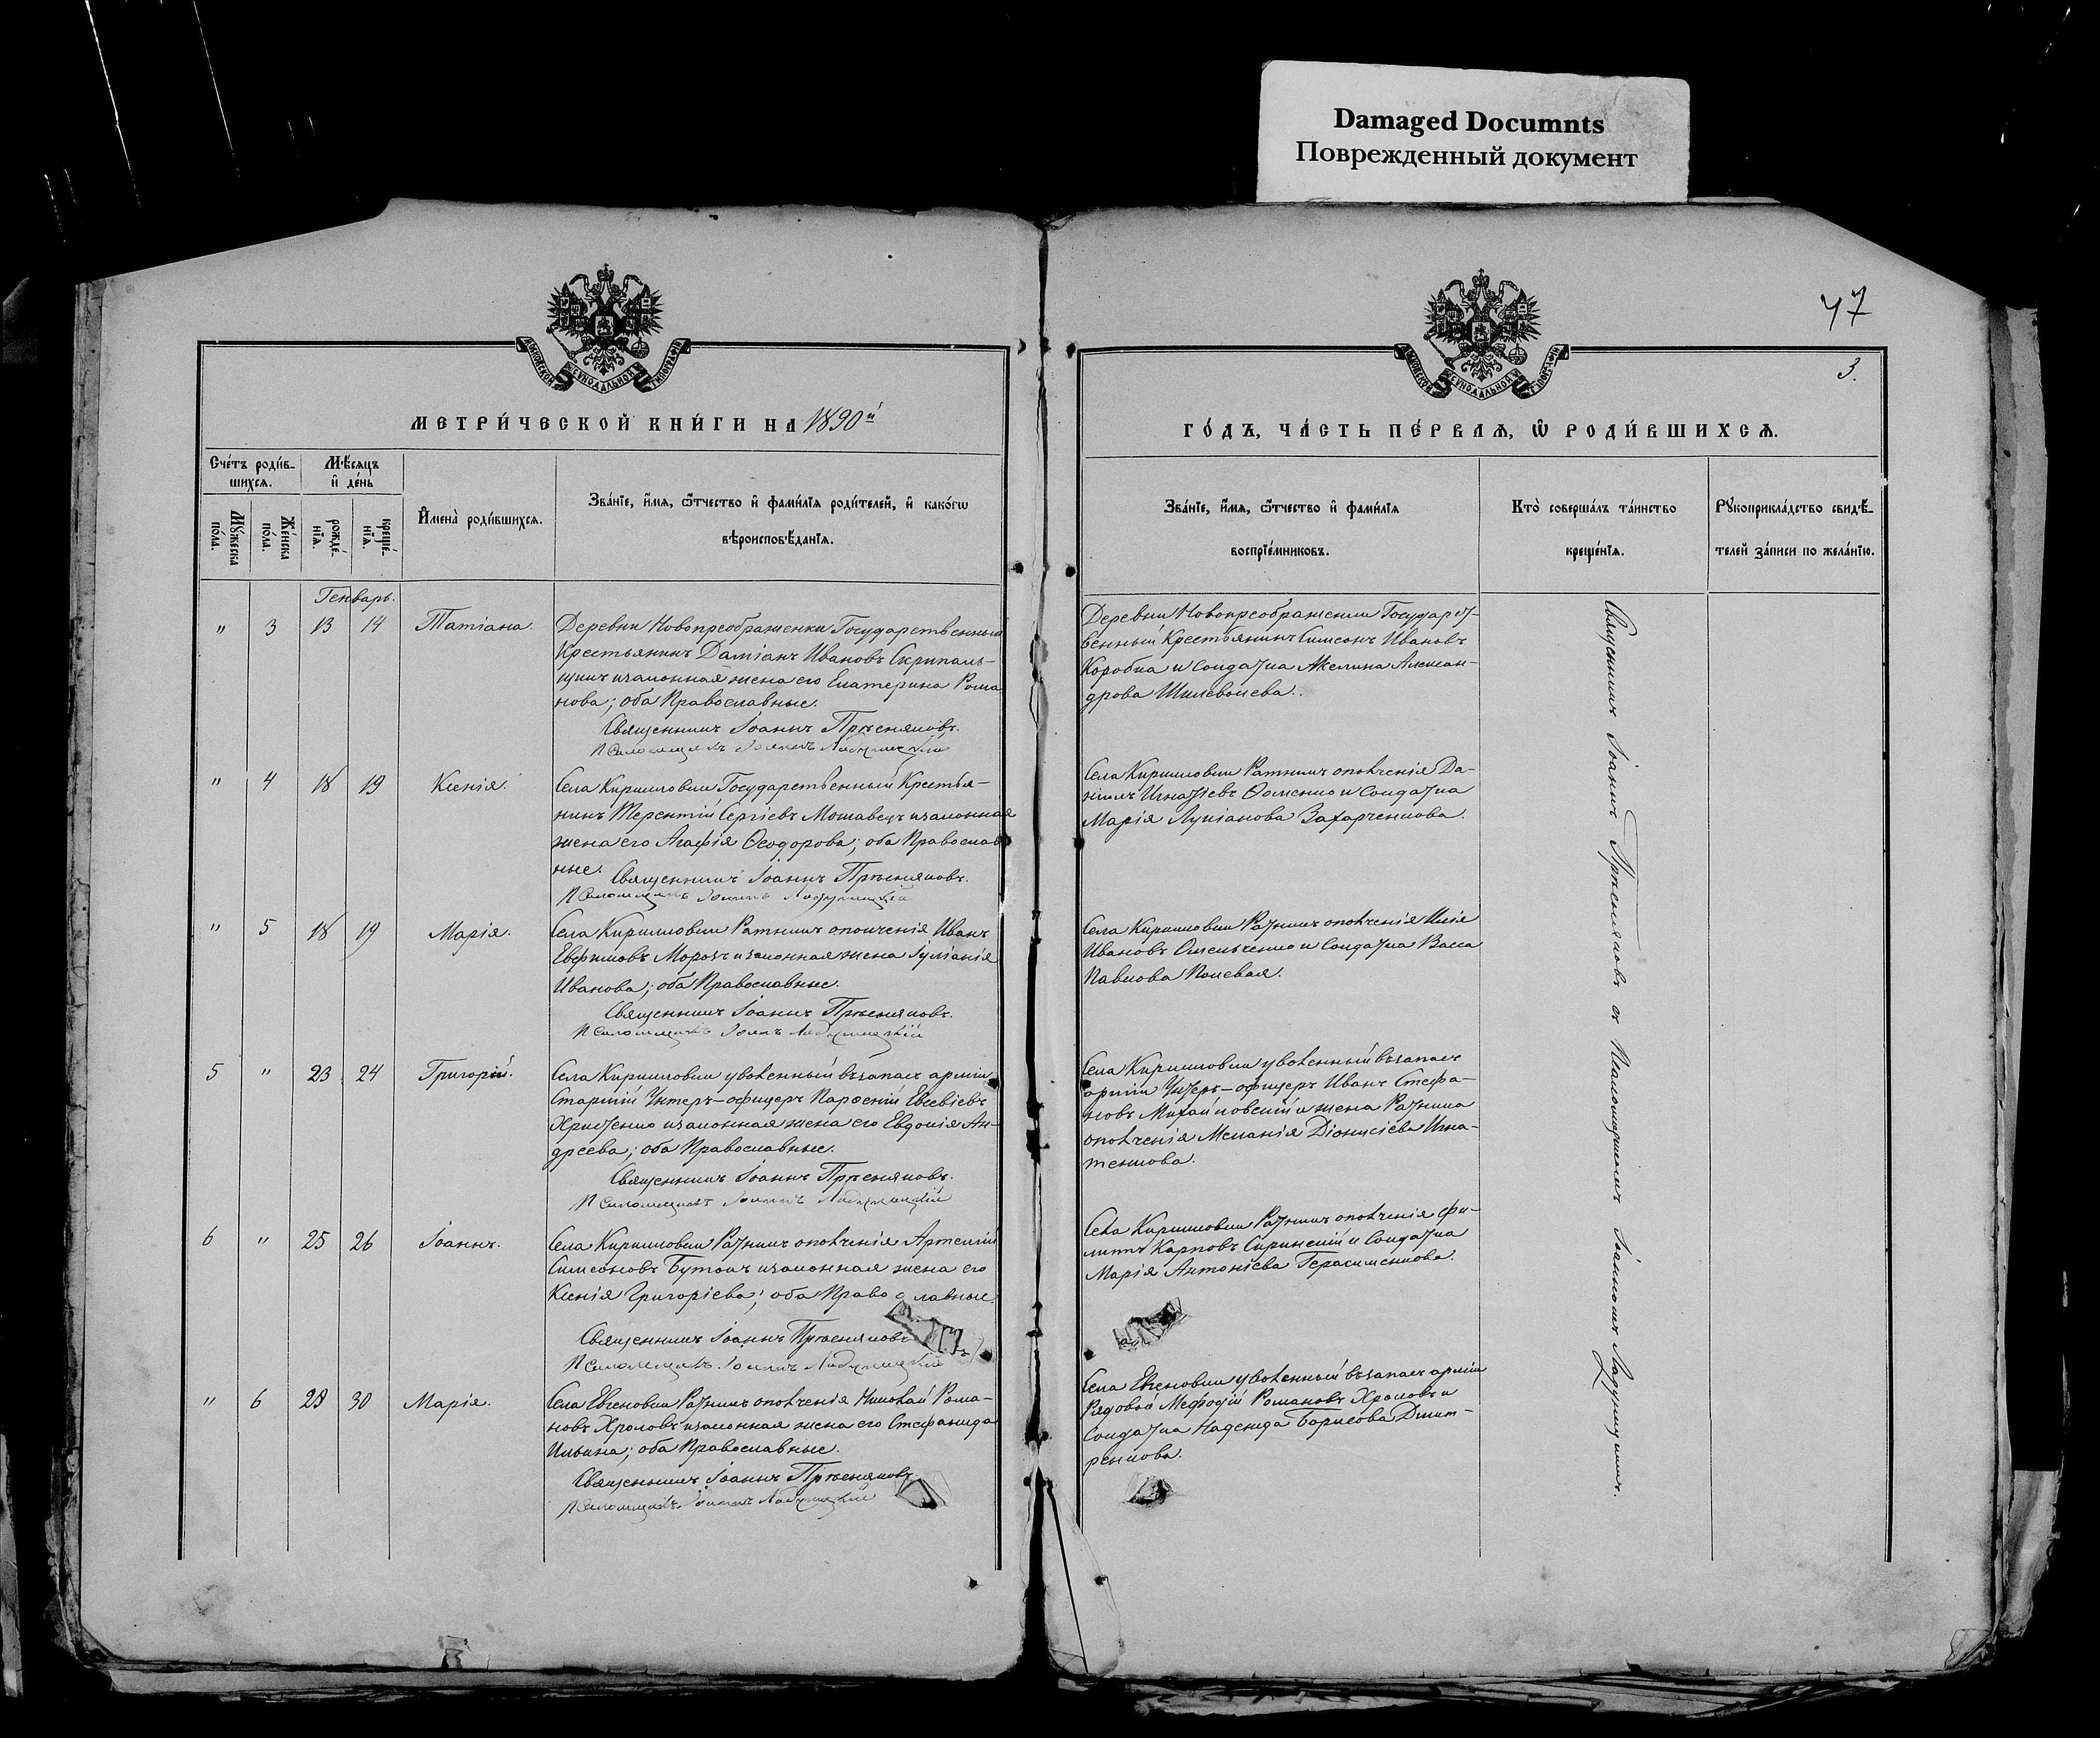 Damaged Documnts
Поврежденный документ
47
3.
МОСКОВСКОЙ СѴНОДАЛЬНОЙ ТИПОГРАФІИ
МОСКОВСКОЙ СѴНОДАЛЬНОЙ ТИПОГРАФІИ
МЕТРИ́ЧЕСКОЙ КНИ́ГИ НА 1890й
ГО́ДЪ, ЧА́СТЬ ПЕ́РВАѦ, Ѡ҆ РОДИ́ВШИХСѦ.
Сче́тъ роди́в-
шихсѧ.
Мѣ́сѧцъ
и҆ де́нь
Мꙋ́жеска по́ла.
Же́нска по́ла.
рожде́-
нїѧ.
креще́-
нїѧ.
И҆мена̀ роди́вшихсѧ.
Зва́нїе, и҆́мѧ, ѻ҆́тчество и҆ фами́лїѧ роди́телей, и҆ како́гѡ
вѣроисповѣ́данїѧ.
Зва́нїе, и҆́мѧ, ѻ҆́тчество и҆ фами́лїѧ
воспрїе́мниковъ.
Кто̀ соверша́лъ та́инство
креще́нїѧ.
Рꙋкоприкла́дство свидѣ́-
телей за́писи по жела́нїю.
Генварь.
" 3 13 14 Татіана.
Деревни Новопреображенки Государственный
Крестьянинъ Даміанъ Ивановъ Скрипаль-
щикъ и законная жена его Екатерина Рома
нова; оба Православные.
Священникъ Іоаннъ Прѣсняковъ.
Псаломщикъ Іоаннъ
Деревни Новопреображенки Государст-
венный Крестьянинъ Симеонъ Ивановъ
Коробка и Солдатка Акелина Алексан-
дрова Шилевалева.
" 4 18 19 Ксенія.
Села Кирилловки Государственный Крестья-
нинъ Терентій Сергіевъ Мошавецъ и законная
жена его Агафія Ѳеодорова; оба Православ
ные. Священникъ Іоаннъ Прѣсняковъ.
Псаломщикъ Іоаннъ
Села Кирилловки Ратникъ ополченія Да-
ніилъ Игнатіевъ Ѳоменко и Солдатка
Марія Лукіанова Захарченкова.
" 5 18 19 Марія.
Села Кирилловки Ратникъ ополченія Иванъ
Евфимовъ Морозъ и законная жена Іуліанія
Иванова; оба Православные.
Священникъ Іоаннъ Прѣсняковъ.
Псаломщикъ Іоаннъ
Села Кирилловки Ратникъ ополченія Илія
Ивановъ Омельченко и Солдатка Васса
Павлова Полевая.
5 " 23 24 Григорій.
Села Кирилловки уволенный въ запасъ арміи
Старшій Унтеръ-офицеръ Парѳеній Евсевіевъ
Христенко и законная жена его Евдокія Ан-
дреева; оба Православные.
Священникъ Іоаннъ Прѣсняковъ.
Псаломщикъ Іоаннъ
Села Кирилловки уволенный въ запасъ
арміи Унтеръ-офицеръ Иванъ Стефа-
новъ Михайловскій и жена Ратника
ополченія Меланія Діонисіева Игна-
тенкова.
6 " 25 26 Іоаннъ.
Села Кирилловки Ратникъ ополченія Артемій
Симеоновъ Бутокъ и законная жена его
Ксенія Григоріева; оба Православные.
Священникъ Іоаннъ Прѣсняковъ
Псаломщикъ Іоаннъ
Села Кирилловки Ратникъ ополченія Фи-
липъ Карповъ Скринскій и Солдатка
Марія Антоніева Герасименкова.
" 6 29 30 Марія.
Села Евгеновки Ратникъ ополченія Николай Рома-
новъ Хроловъ и законная жена его Стефанида
Ильина; оба Православные.
Священникъ Іоаннъ Прѣсняковъ
Псаломщикъ Іоаннъ
Села Евгеновки уволенный въ запасъ арміи
Рядовой Мефодій Романовъ Хроловъ и
Солдатка Надежда Борисова Дмит-
ренкова.
Священникъ Іоаннъ Прѣсняковъ съ Псаломщикомъ Іоанномъ